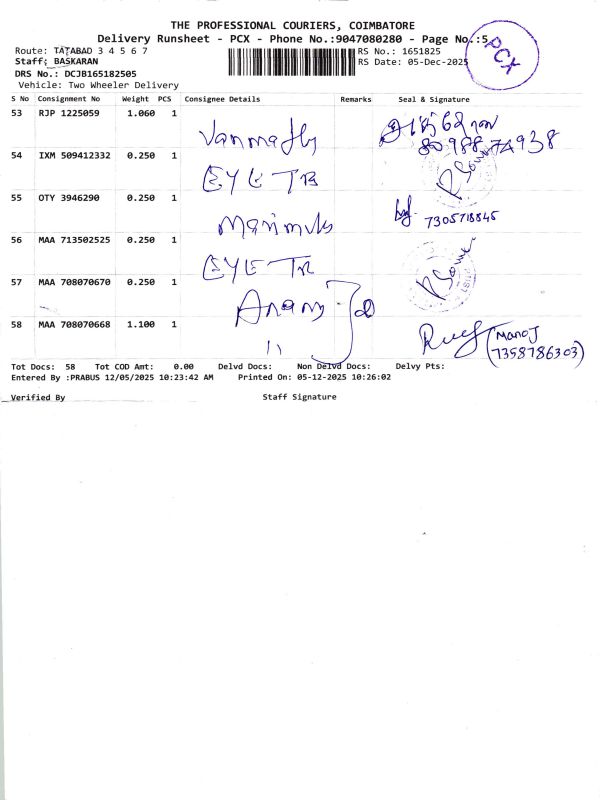 THE PROFESSIONAL COURIERS, COIMBATORE
Delivery Runsheet - PCX - Phone No.:9047080280 - Page No.:5
PCX
Route: TATABAD 3 4 5 6 7
RS No.: 1651825
Staff: BASKARAN
RS Date: 05-Dec-2025
DRS No.: DCJB165182505
Vehicle: Two Wheeler Delivery
S No Consignment No Weight PCS Consignee Details Remarks Seal & Signature
53 RJP 1225059 1.060 1
80 988 74938
54 IXM 509412332 0.250 1
EYE TB
55 OTY 3946290 0.250 1
7305718845
56 MAA 713502525 0.250 1
57 MAA 708070670 0.250 1
58 MAA 708070668 1.100 1
11
(Manoj
7358786303)
Tot Docs: 58 Tot COD Amt: 0.00 Delvd Docs: Non Delvd Docs: Delvy Pts:
Entered By :PRABUS 12/05/2025 10:23:42 AM Printed On: 05-12-2025 10:26:02
Verified By Staff Signature